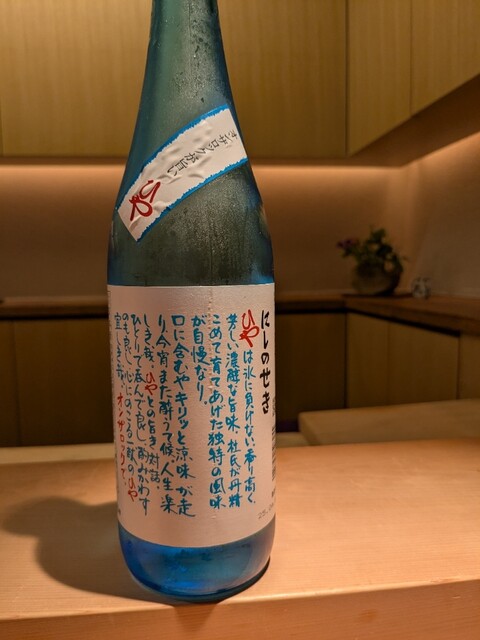 オンザロックが旨い
ひや
にしのせき
ひやは氷に負けない、香り高く、
芳しい濃醇な旨味、杜氏が丹精
こめて育てあげた独特の風味
が自慢なり。
口に含むやキリッと涼味が走
り、今宵また酔うて候、人生楽
しき哉、ひやとの旨き対話。
ひとりで呑んで良し、酌みかわす
のも良し、心にのこる一献のひや
宜しき哉、オンザロックで。